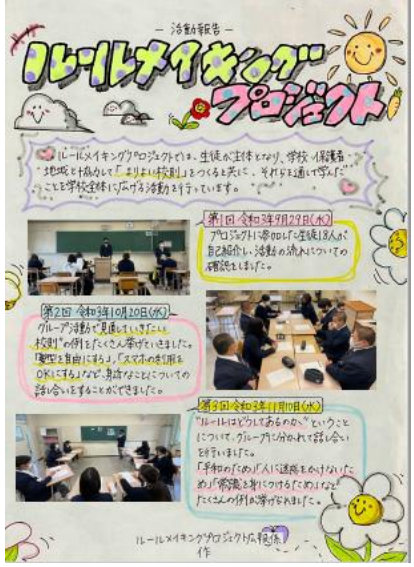 － 活動報告 －
ルールメイキング
プロジェクト
ルールメイキングプロジェクトでは、生徒が主体となり、学校・保護者・
地域と協力して「よりよい校則」をつくると共に、それらを通して学んだ
ことを学校全体に広げる活動を行っています。
第1回 令和3年9月29日(水)
プロジェクトに参加した生徒18人が
自己紹介し、活動の流れについての
確認をしました。
第2回 令和3年10月20日(水)
グループ活動で見直していきたい
校則"の例をたくさん挙げていきました。
「髪型を自由にする」、「スマホの使用を
OKにする」など、身近なことについての
話し合いをすることができました。
第3回 令和3年11月10日(水)
"ルールはどうしてあるのか"ということ
について、グループに分かれて話し合い
を行いました。
「平和のため」「人に迷惑をかけないた
め」「常識を身につけるため」など
たくさんの例が挙げられました。
ルールメイキングプロジェクト広報係
作